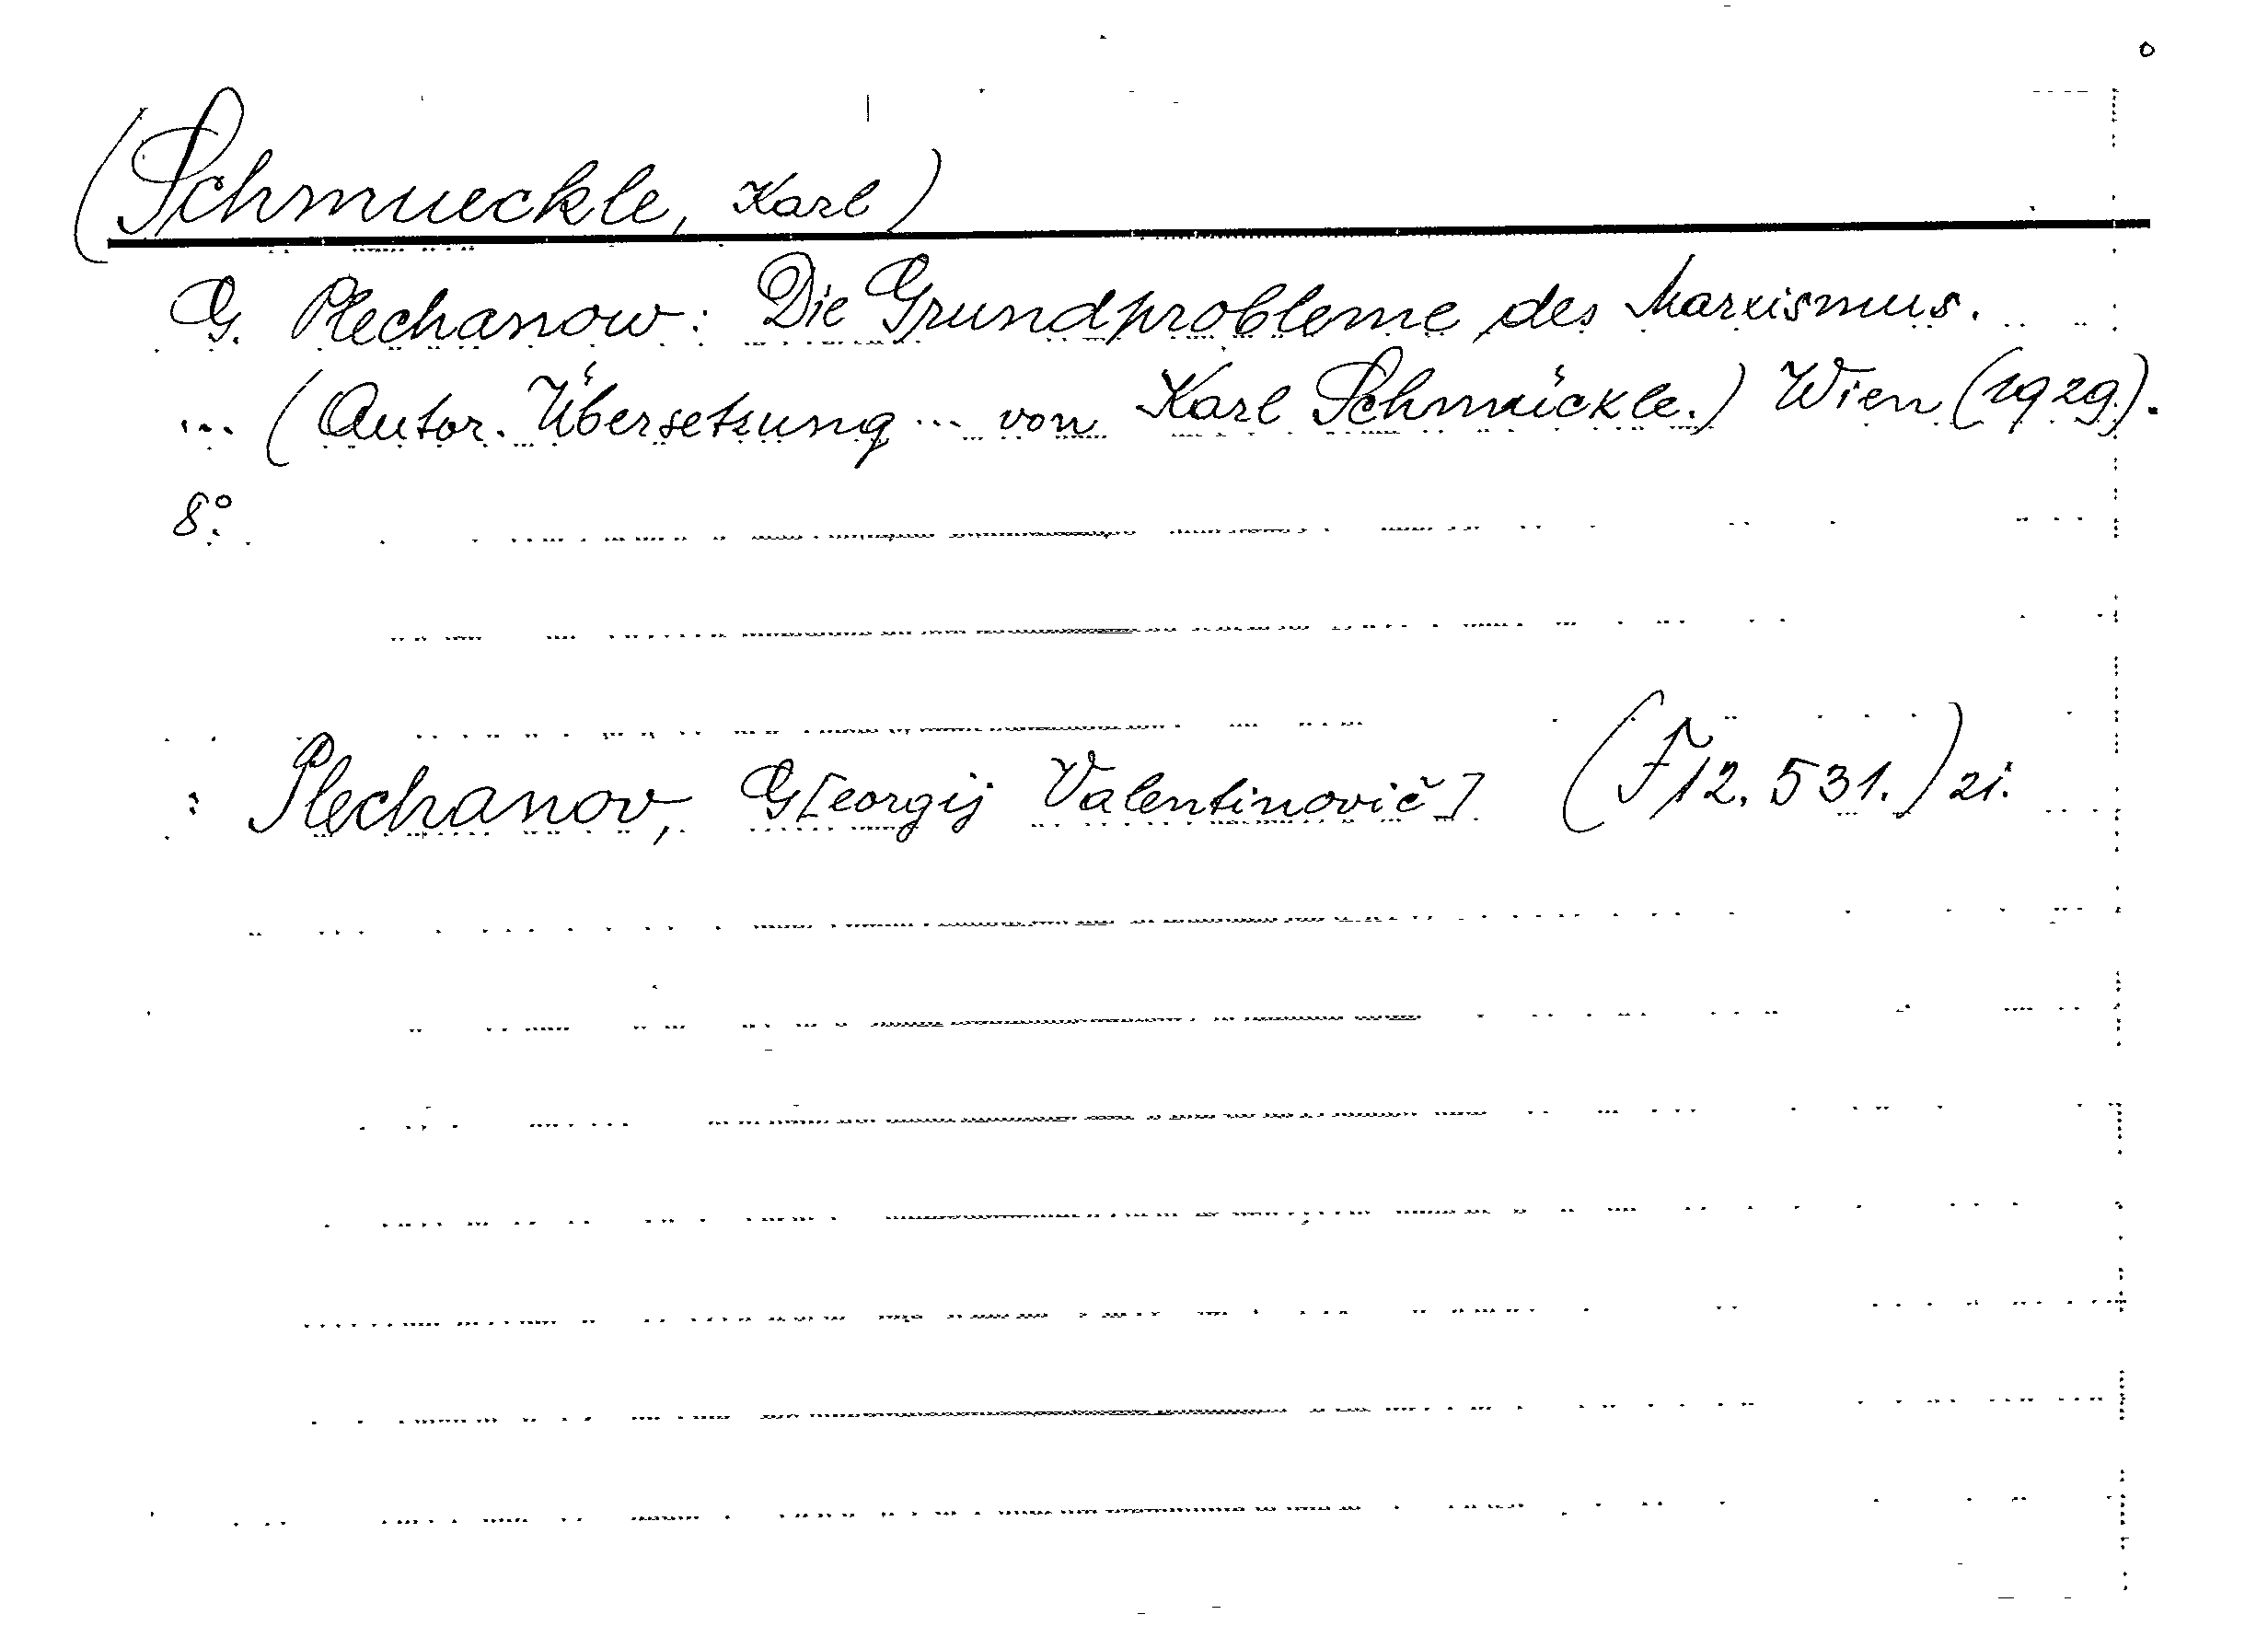 (Schmueckle, Karl)
G. Plechanow: Die Grundprobleme des Marxismus.
... (Autor. Übersetzung ... von Karl Schmückle.) Wien (1929).
8°.
: Plechanov, G[eorgij Valentinovič] (F12.531.) zi.